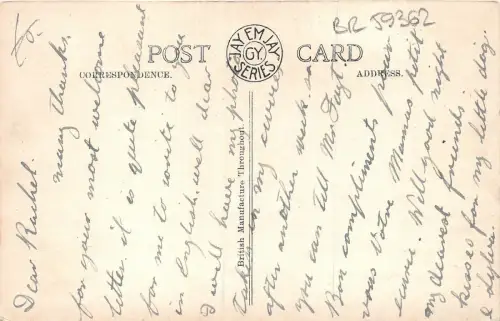 BR 59362
POST CARD
JAY EM JAY
GY.
SERIES
CORRESPONDENCE.
ADDRESS.
British Manufacture Throughout.
Dear Rachel.
many thanks,
for your most welcome
letter, it is quite pleasant
for me to write to you
in English, well dear
I will have my photo
taken in my
after another week
you can tell Mr
Bon compliments pour
vous votre Mamas petit
Well good night
my dearest friend,
kisses for my little dog,